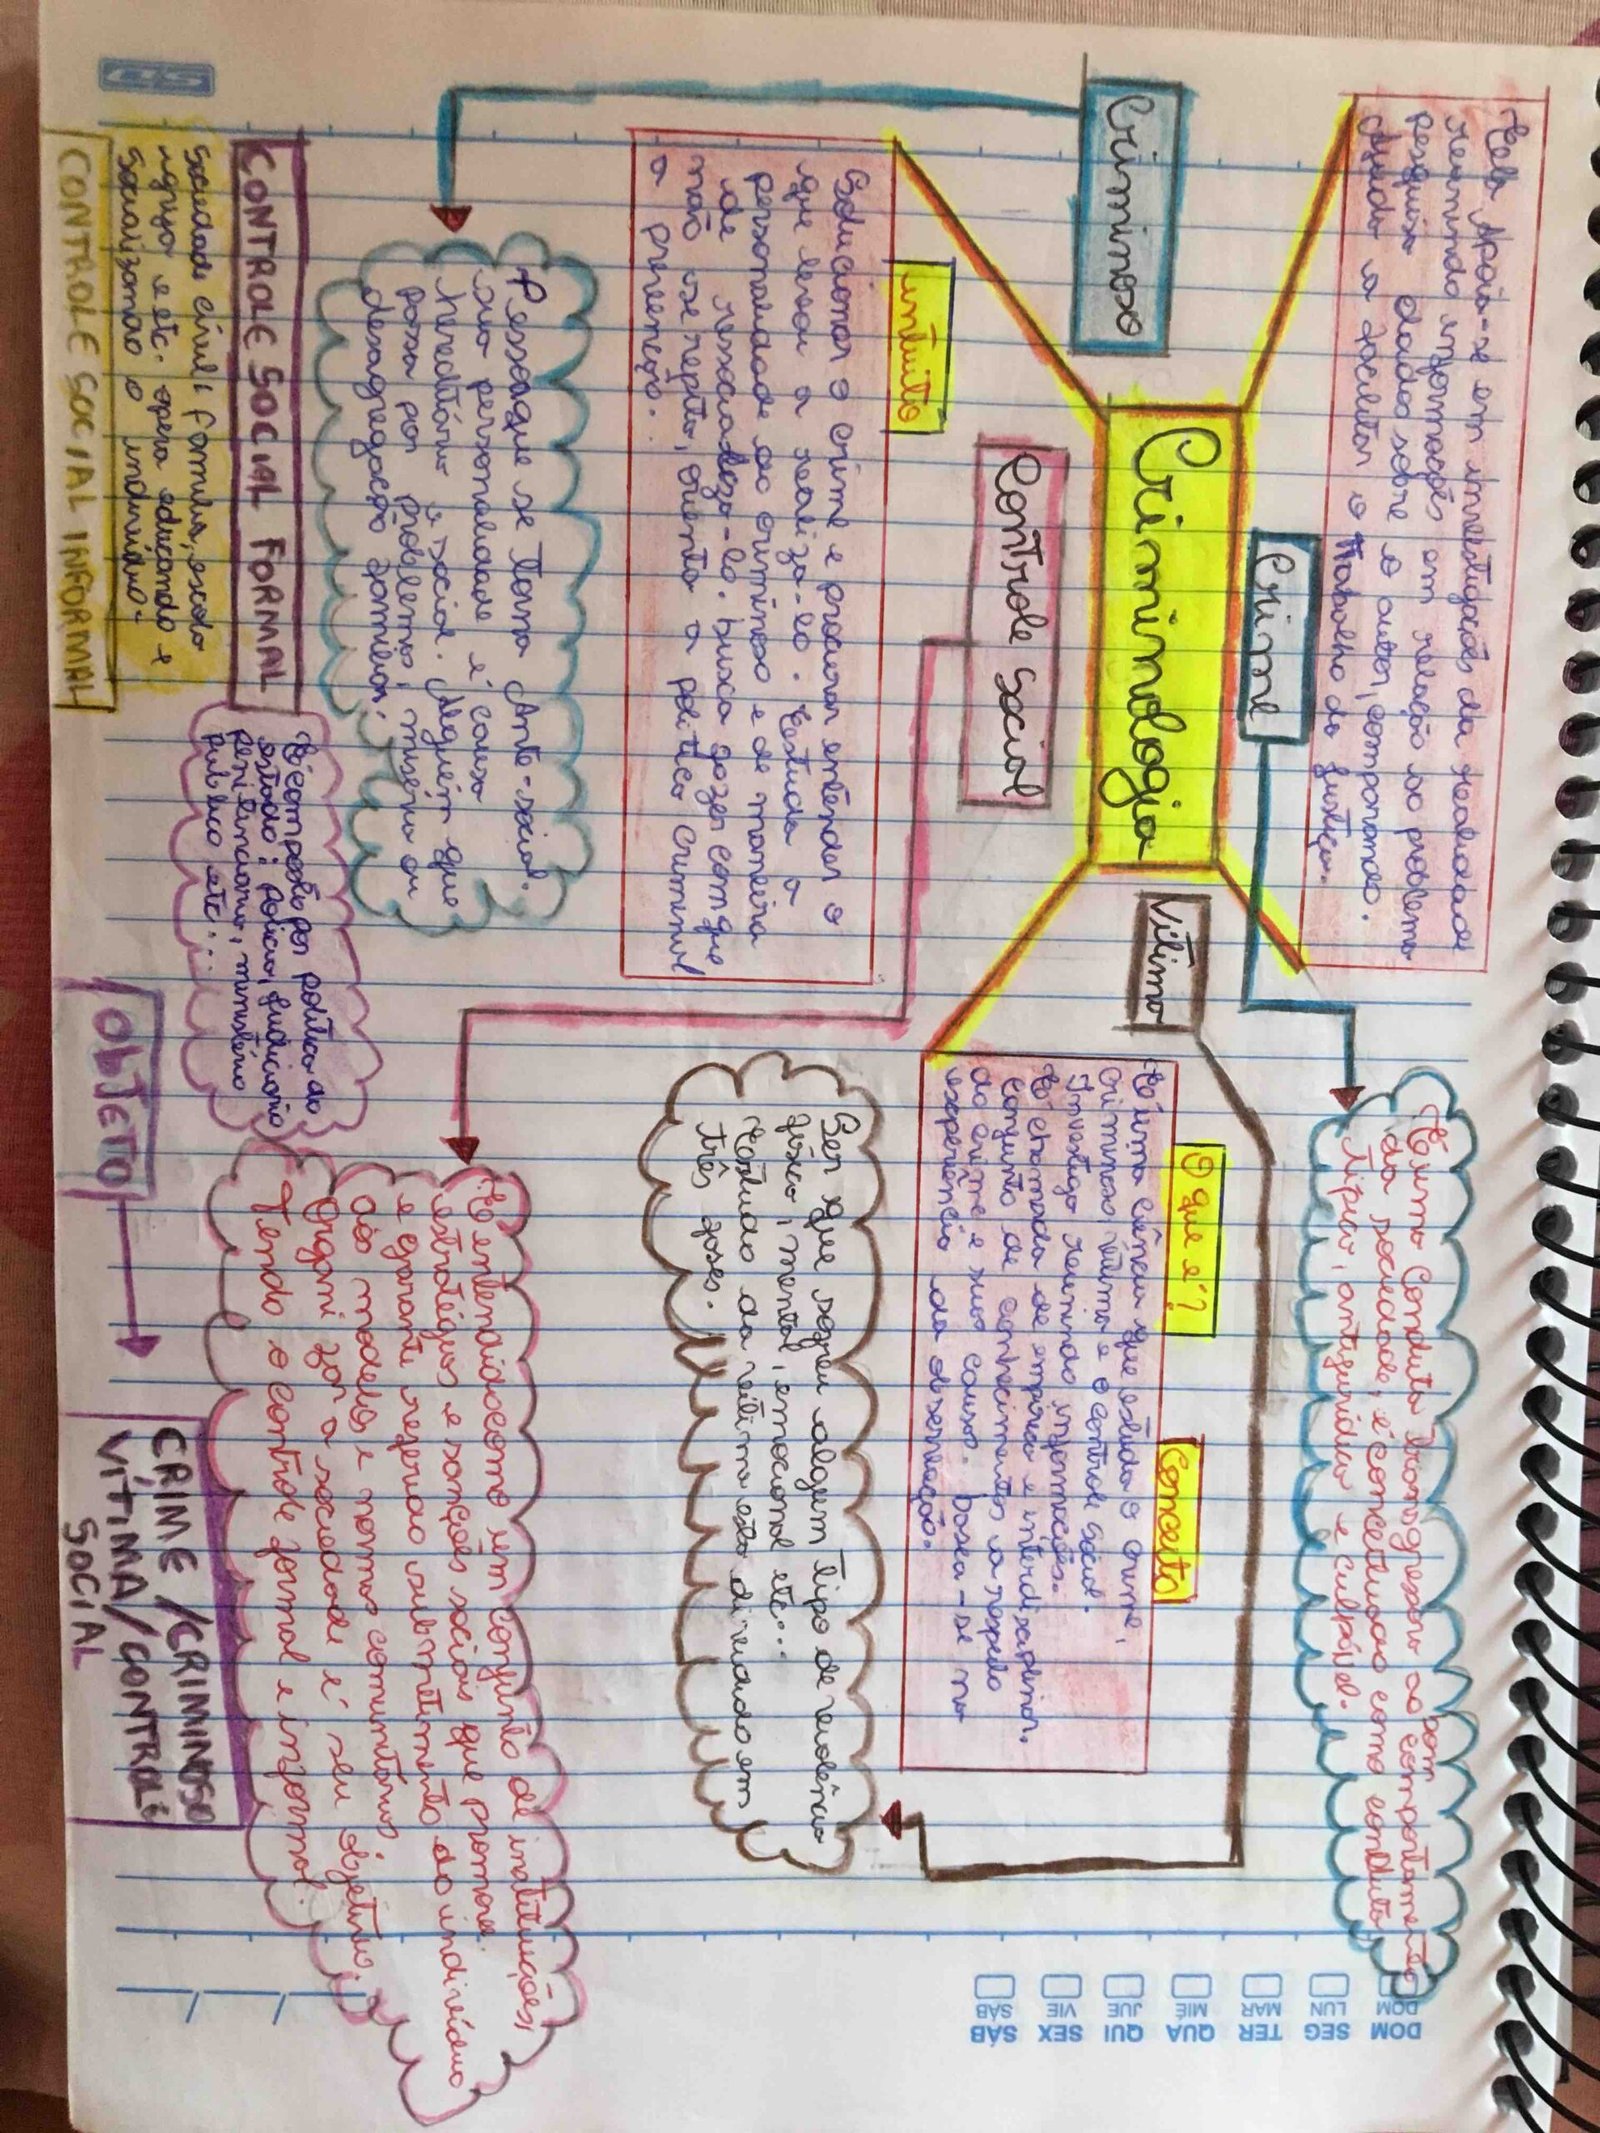 Ela Apoia-se em investigações da realidade
reunindo informações em relação ao problema
pesquisa dados sobre o autor, comparando.
Ajuda a facilitar o Trabalho da justiça.
Crime
É uma Conduta transgressora ao bom comportamento
da sociedade, é conceituado como conduta
típica, antijurídica e culpável.
Criminoso
Criminologia
Vítima
Controle Social
intuito
Solucionar o crime e procurar entender o
que levou a realiza-lo. Estuda a
personalidade do criminoso e de maneira
de ressocializa-lo. busca fazer com que
não se repita, orienta a política criminal
a prevenção.
O que é?
Conceito
É uma Ciência que estuda o crime,
criminoso, vítima e o controle social.
Investiga reunindo informações.
É chamada de empírica e interdisciplinar.
Conjunto de conhecimentos a respeito
do crime e suas causas. baseia-se na
esxperiência da observação.
Ser que sofreu algum tipo de violência
física, mental, emocional etc...
Estudo da vítima esta dividido em
três fases.
Pessoa que se torna Ante-social.
sua personalidade é causa
hereditária e social. Alguém que
passa por problemas, miséria ou
desagregação familiar.
É entendido como um conjunto de instituições,
estratégias e sanções sociais que promove
e garante submetimento do indivíduo
aos modelos e normas comunitárias.
Organizar a sociedade é seu objetivo.
Tendo o controle formal e informal.
CONTROLE SOCIAL FORMAL
É composto por política do
estado: Polícia, judiciário
penitenciário, ministério
público etc...
Sociedade civil: família, escola
igreja e etc. opera educando e
socializando o indivíduo.
CONTROLE SOCIAL INFORMAL
OBJETO
CRIME/CRIMINOSO
VÍTIMA/CONTROLE
SOCIAL
DOM SEG TER QUA QUI SEX SÁB
DOM LUN MAR MIÉ JUE VIE SÁB
SD